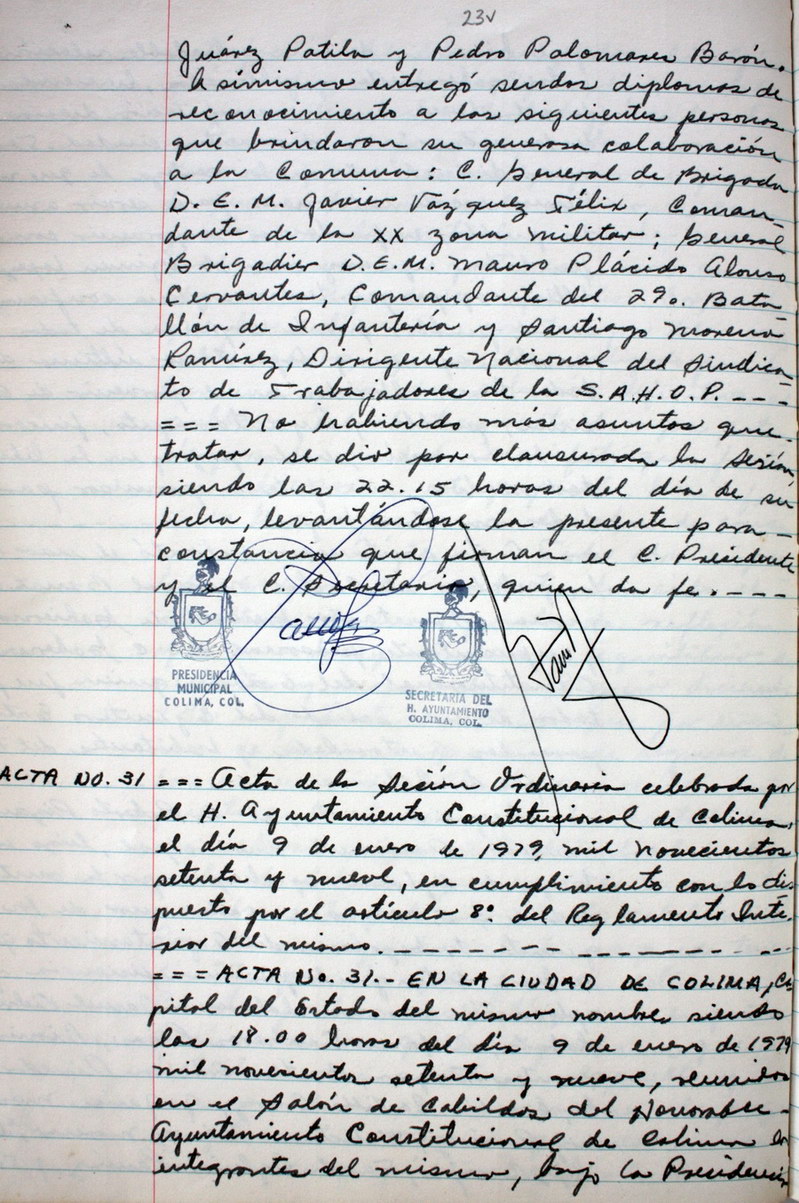 23v
Juárez Patila y Pedro Palomares Barón.
Asimismo entregó sendos diplomas de
reconocimiento a las siguientes personas
que brindaron su generosa colaboración
a la Comuna: C. General de Brigada
D. E. M. Javier Vázquez Félix, Coman-
dante de la XX zona militar; General
Brigadier D.E.M. Mauro Plácido Alonso
Cervantes, Comandante del 29o. Bata-
llón de Infantería y Santiago Moreno
Ramírez, Dirigente Nacional del Sindica-
to de Trabajadores de la S.A.H.O.P. - - -
= = = No habiendo más asuntos que
tratar, se dio por clausurada la Sesión,
siendo las 22.15 horas del día de su
fecha, levantándose la presente para -
constancia que firman el C. Presidente
y el C. Secretario, quien da fe. - - - -
PRESIDENCIA
MUNICIPAL
COLIMA, COL.
SECRETARIA DEL
H. AYUNTAMIENTO
COLIMA, COL.
ACTA NO. 31 = = = Acta de la Sesión Ordinaria celebrada por
el H. Ayuntamiento Constitucional de Colima,
el día 9 de enero de 1979, mil novecientos
setenta y nueve, en cumplimiento con lo dis
puesto por el artículo 8o. del Reglamento Inte-
rior del mismo. - - - - - - - - - - - -
= = = ACTA No. 31.- EN LA CIUDAD DE COLIMA, Ca
pital del Estado del mismo nombre, siendo
las 18.00 horas del día 9 de enero de 1979
mil novecientos setenta y nueve, reunidos
en el Salón de Cabildos del Honorable -
Ayuntamiento Constitucional de Colima los
integrantes del mismo, bajo la Presidencia